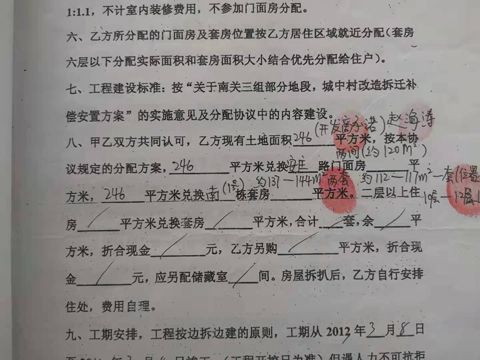 1:1.1，不计室内装修费用，不参加门面房分配。
六、乙方所分配的门面房及套房位置按乙方居住区域就近分配(套房
六层以下分配实际面积和套房面积大小结合优先分配给住户)。
七、工程建设标准：按"关于南关三组部分地段，城中村改造拆迁补
偿安置方案"的实施意见及分配协议中的内容建设。
(开发商承诺)
八、甲乙双方共同认可，乙方现有土地面积 246 平方米，按本协
两间(约120M²)
议规定的分配方案，246 平方米兑换 路门面房 平
约131—144M²两套 约112—117M²一套
方米，246 平方米兑换南(1#)栋套房 平方米，二层以上住
房 / 平方米兑换套房 / 平方米，合计 / 套，余 / 平
方米，折合现金 / 元，乙方另购 / 平方米，折合现
金 / 元，应另配储藏室 / 间。房屋拆扒后，乙方自行安排
住处，费用自理。
九、工期安排，工程按边拆边建的原则，工期从 2012年 3 月 8 日